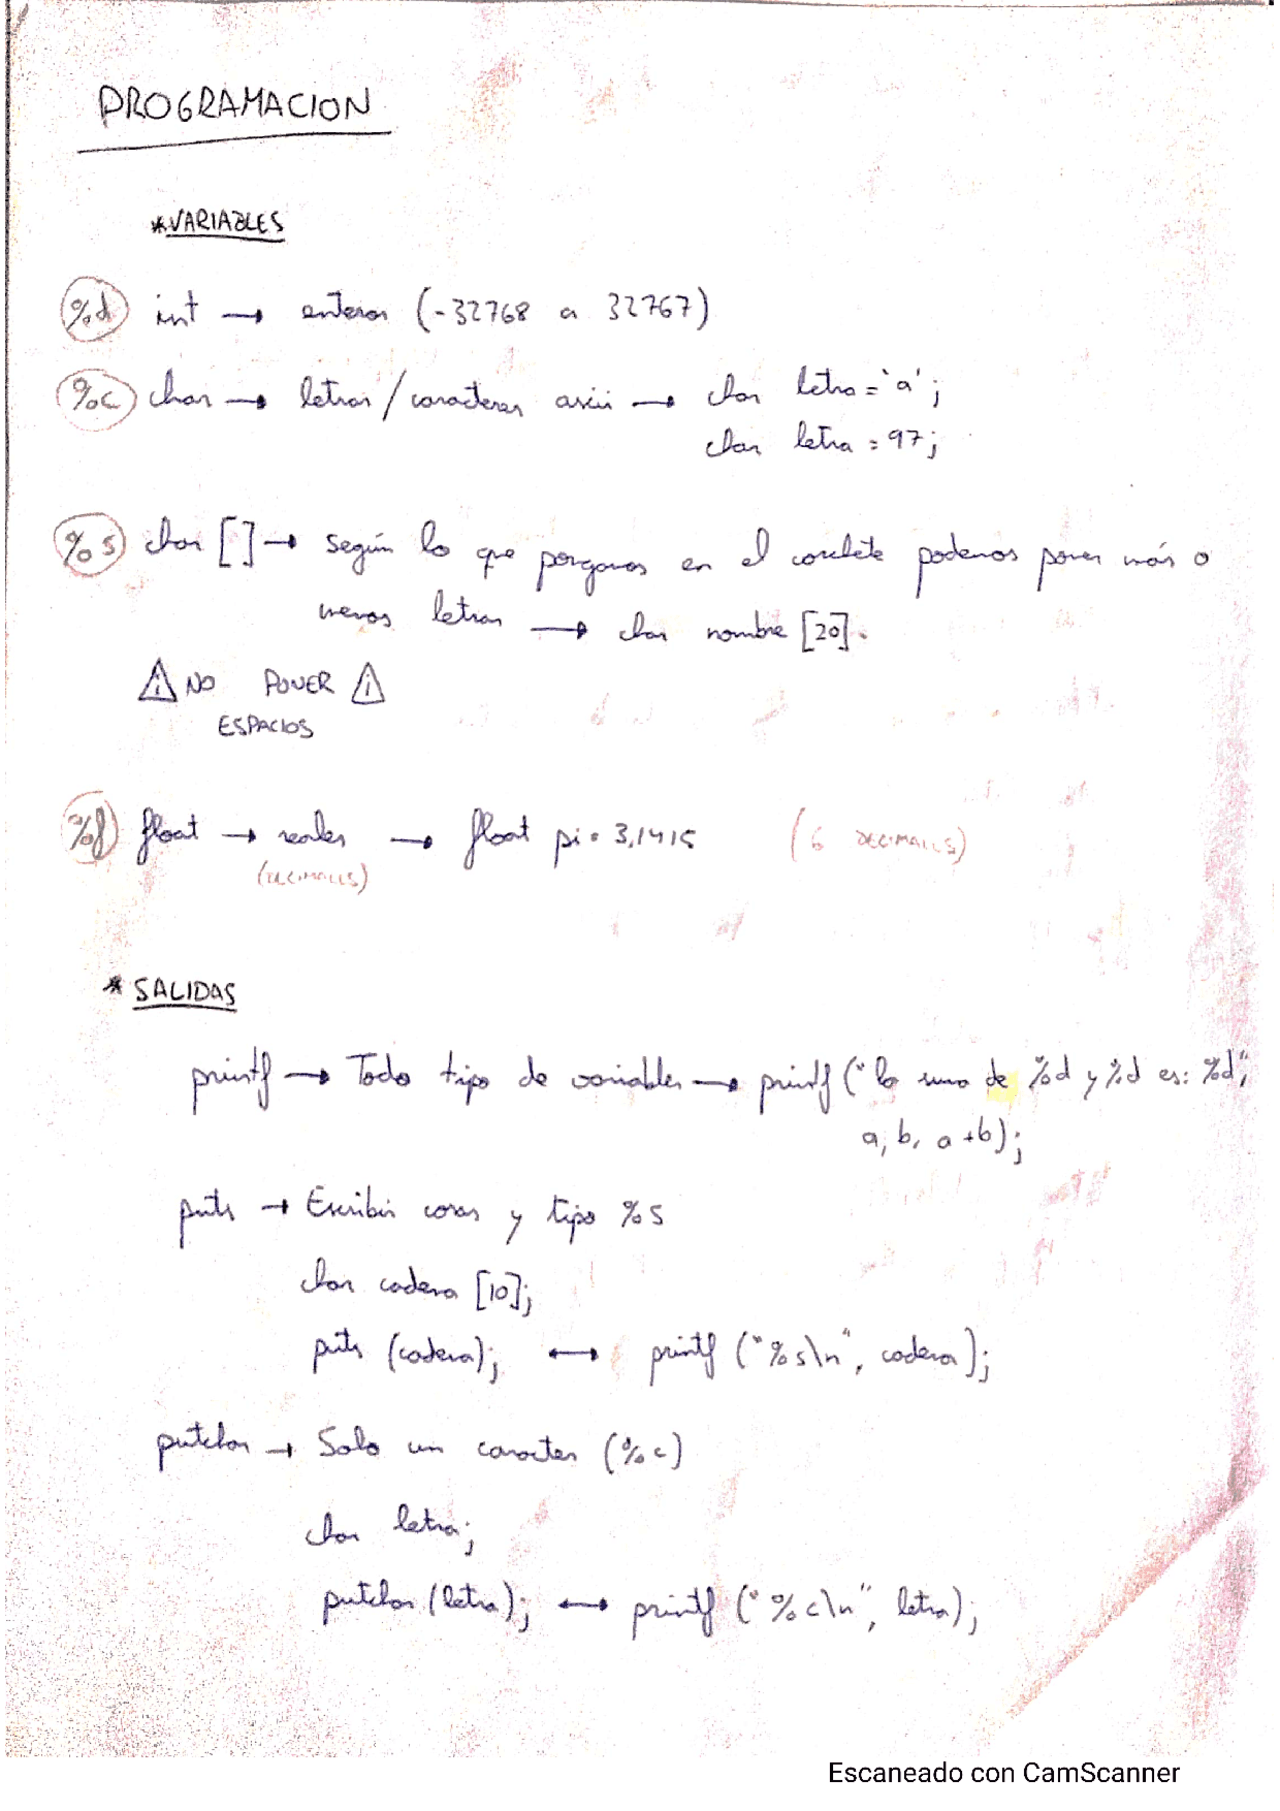 PROGRAMACION
*VARIABLES
%d int → enteros (-32768 a 32767)
%c char → letras/caracteres ascii → char letra = 'a';
char letra = 97;
%s char [] → según lo que pongamos en el corchete podemos poner más o
menos letras → char nombre [20].
⚠ NO PONER ⚠
ESPACIOS
%f float → reales → float pi = 3,1415 (6 DECIMALES)
(DECIMALES)
* SALIDAS
printf → Todo tipo de variables → printf ("la suma de %d y %d es: %d",
a, b, a+b);
puts → Escribir cosas y tipo %s
char cadena [10];
puts (cadena); ↔ printf ("%s\n", cadena);
putchar → Solo un caracter (%c)
char letra;
putchar (letra); ↔ printf ("%c\n", letra);
Escaneado con CamScanner